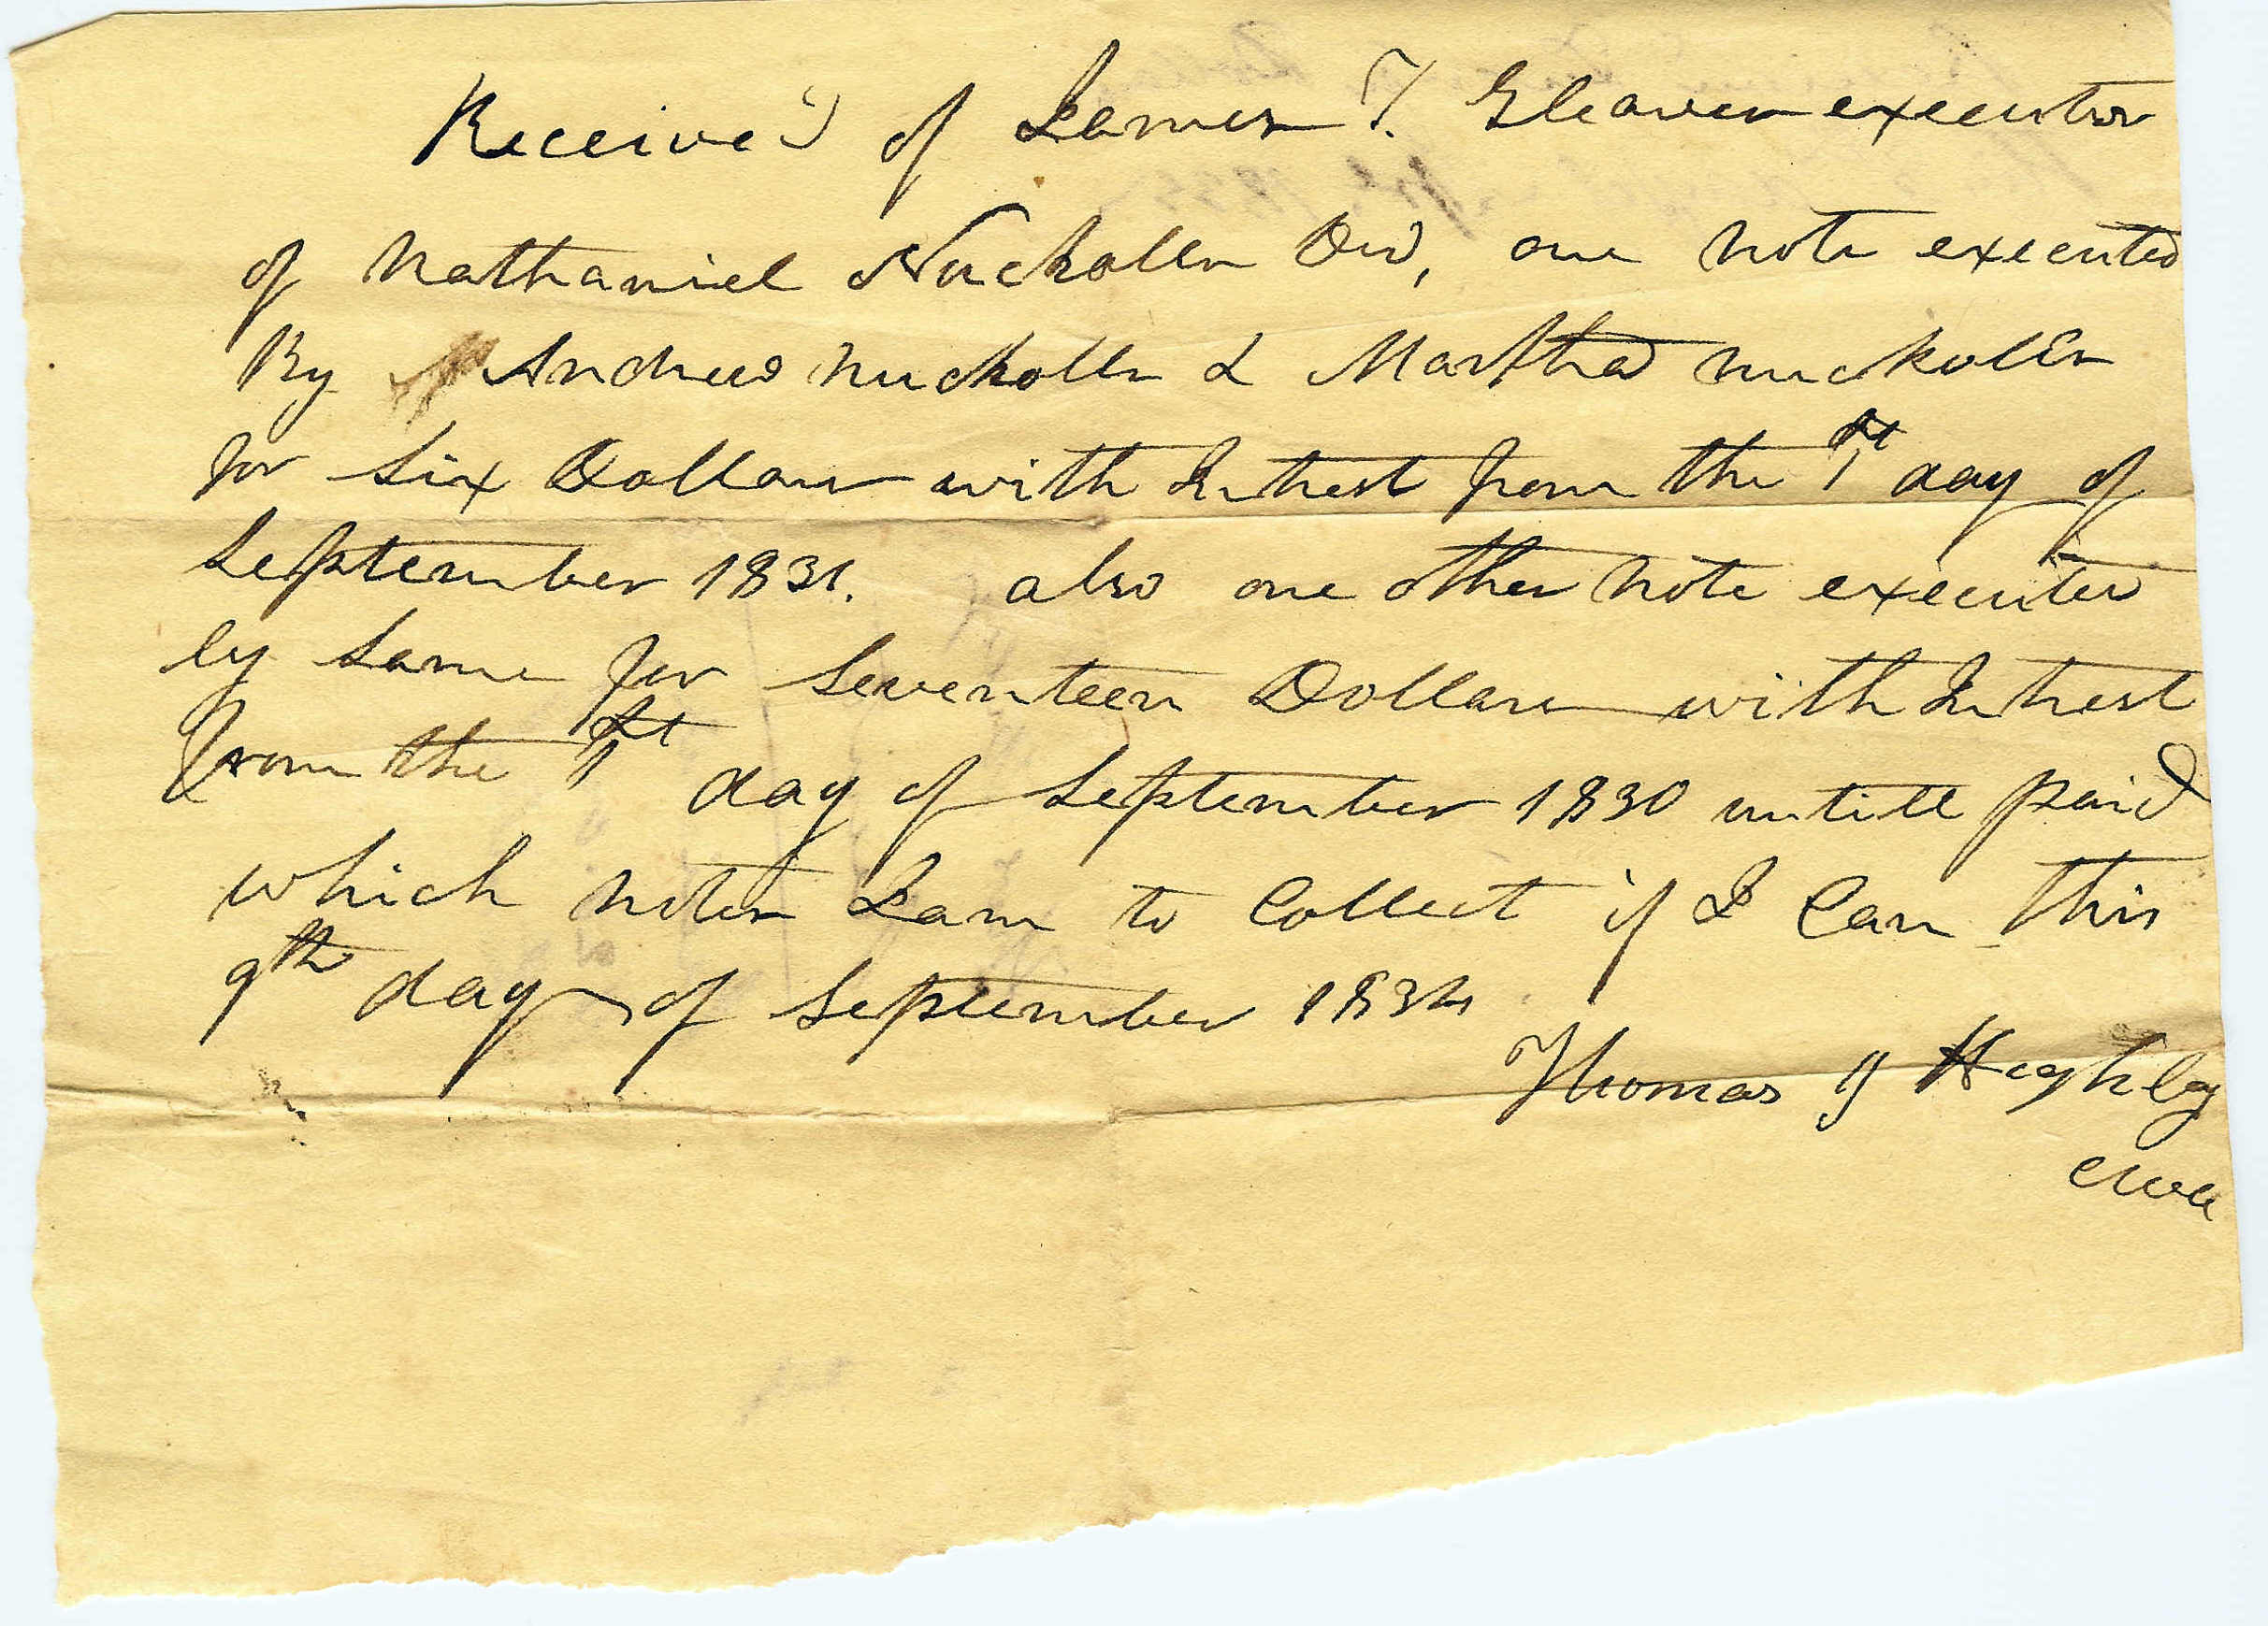 Received of James T. Gleaves executor
of Nathaniel Nuckolls Decd, one note executed
By Andrew Nuckolls & Martha Nuckolls
for six Dollars with Intrest from the 1st day of
September 1831. also one other note executed
by same for seventeen Dollars with Intrest
from the 1st day of September 1830 untill paid
which notes I am to Collect if I Can this
9th day of September 1834
Thomas J